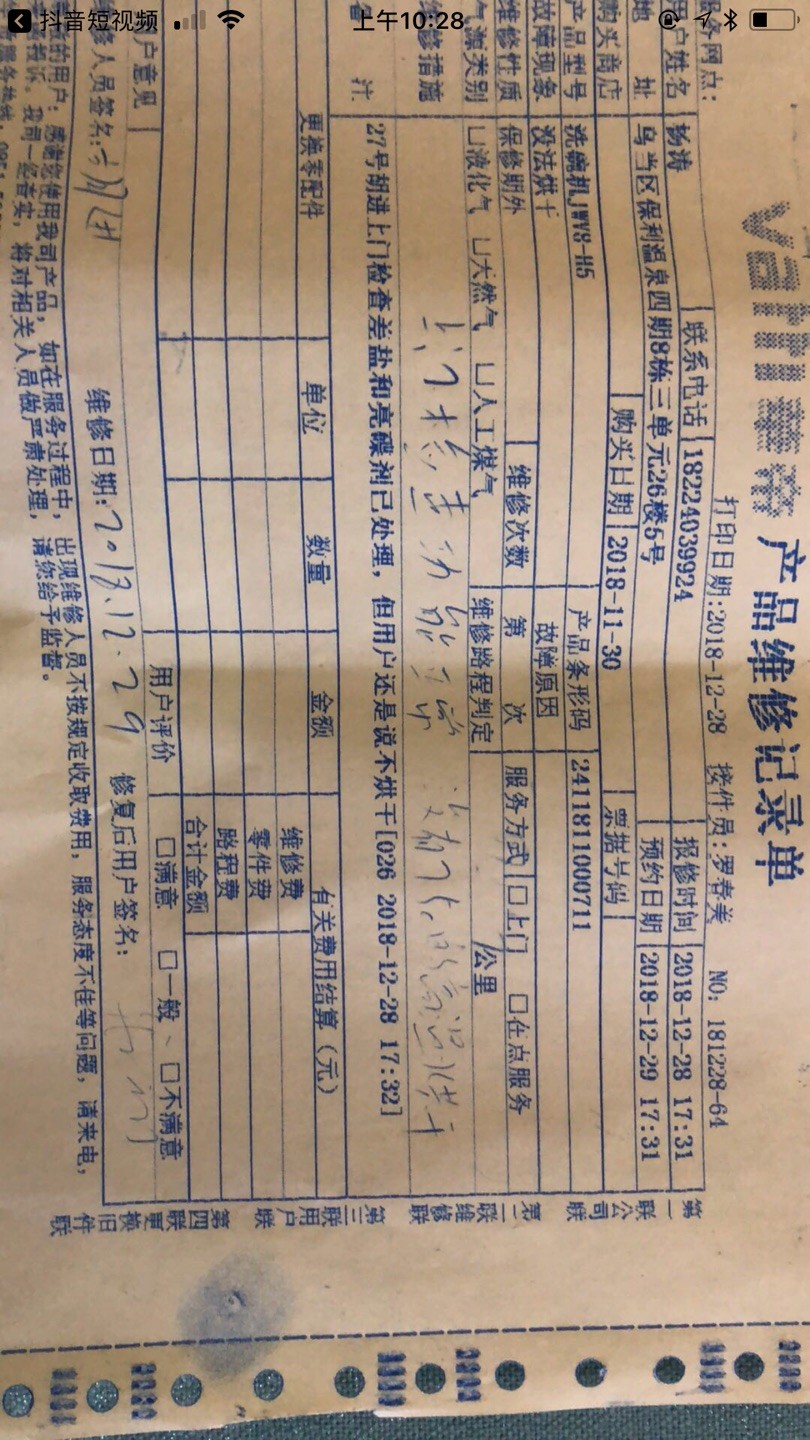 抖音短视频
上午10:28
产品维修记录单
务网点:
打印日期:2018-12-28 接件员:罗春美 NO: 181228-64
户姓名 杨涛 联系电话 18224039924 报修时间 2018-12-28 17:31
地 址 乌当区保利温泉四期8栋三单元26楼5号 预约日期 2018-12-29 17:31
购买商店 购买日期 2018-11-30 票据号码
产品型号 洗碗机JWV8-H5 产品条形码 2411811000711
故障现象 没法烘干 故障原因
维修性质 保修期外 维修次数 第 次 服务方式 □上门 □在点服务
气源类别 □液化气 □天然气 □人工煤气 维修路程判定 /公里
维修措施 上门检查功能正常
备 注 27号胡进上门检查差盐和亮碟剂已处理，但用户还是说不烘干[026 2018-12-28 17:32]
更换零配件 单位 数量 金额 有关费用结算(元)
维修费
零件费
路程费
合计金额
户意见 用户评价 □满意 □一般、□不满意
修人员签名: 维修日期:2018.12.29 修复后用户签名:
的用户：感谢您使用我司产品，如在服务过程中，出现维修人员不按规定收取费用，服务态度不佳等问题，请来电，
投诉。我司一经查实，将对相关人员做严肃处理，请您给予监督。
第一联公司联
第二联维修联
第三联用户联
第四联更换旧件联